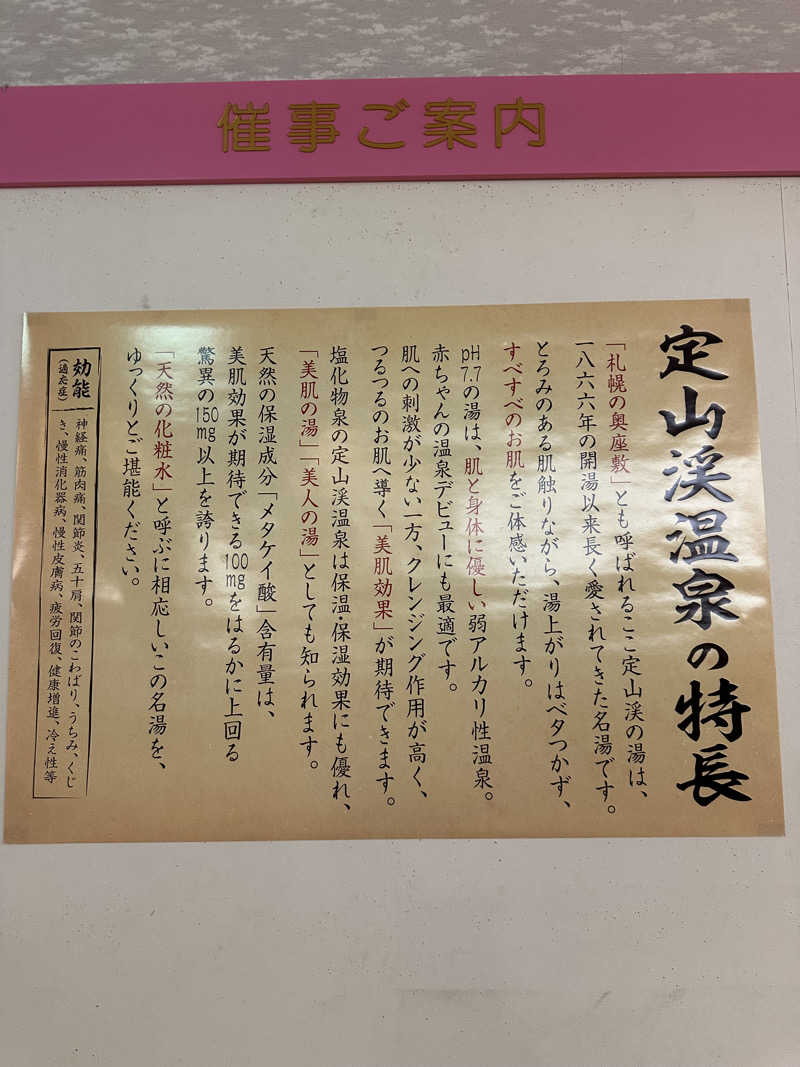 催事ご案内
定山渓温泉の特長
「札幌の奥座敷」とも呼ばれるここ定山渓の湯は、
一八六六年の開湯以来長く愛されてきた名湯です。
とろみのある肌触りながら、湯上がりはベタつかず、
すべすべのお肌をご体感いただけます。
pH7.7の湯は、肌と身体に優しい弱アルカリ性温泉。
赤ちゃんの温泉デビューにも最適です。
肌への刺激が少ない一方、クレンジング作用が高く、
つるつるのお肌へ導く「美肌効果」が期待できます。
塩化物泉の定山渓温泉は保温・保湿効果にも優れ、
「美肌の湯」「美人の湯」としても知られます。
天然の保湿成分「メタケイ酸」含有量は、
美肌効果が期待できる100mgをはるかに上回る
驚異の150mg以上を誇ります。
「天然の化粧水」と呼ぶに相応しいこの名湯を、
ゆっくりとご堪能ください。
効能
（適応症）
神経痛、筋肉痛、関節炎、五十肩、関節のこわばり、うちみ、くじ
き、慢性消化器病、慢性皮膚病、疲労回復、健康増進、冷え性等